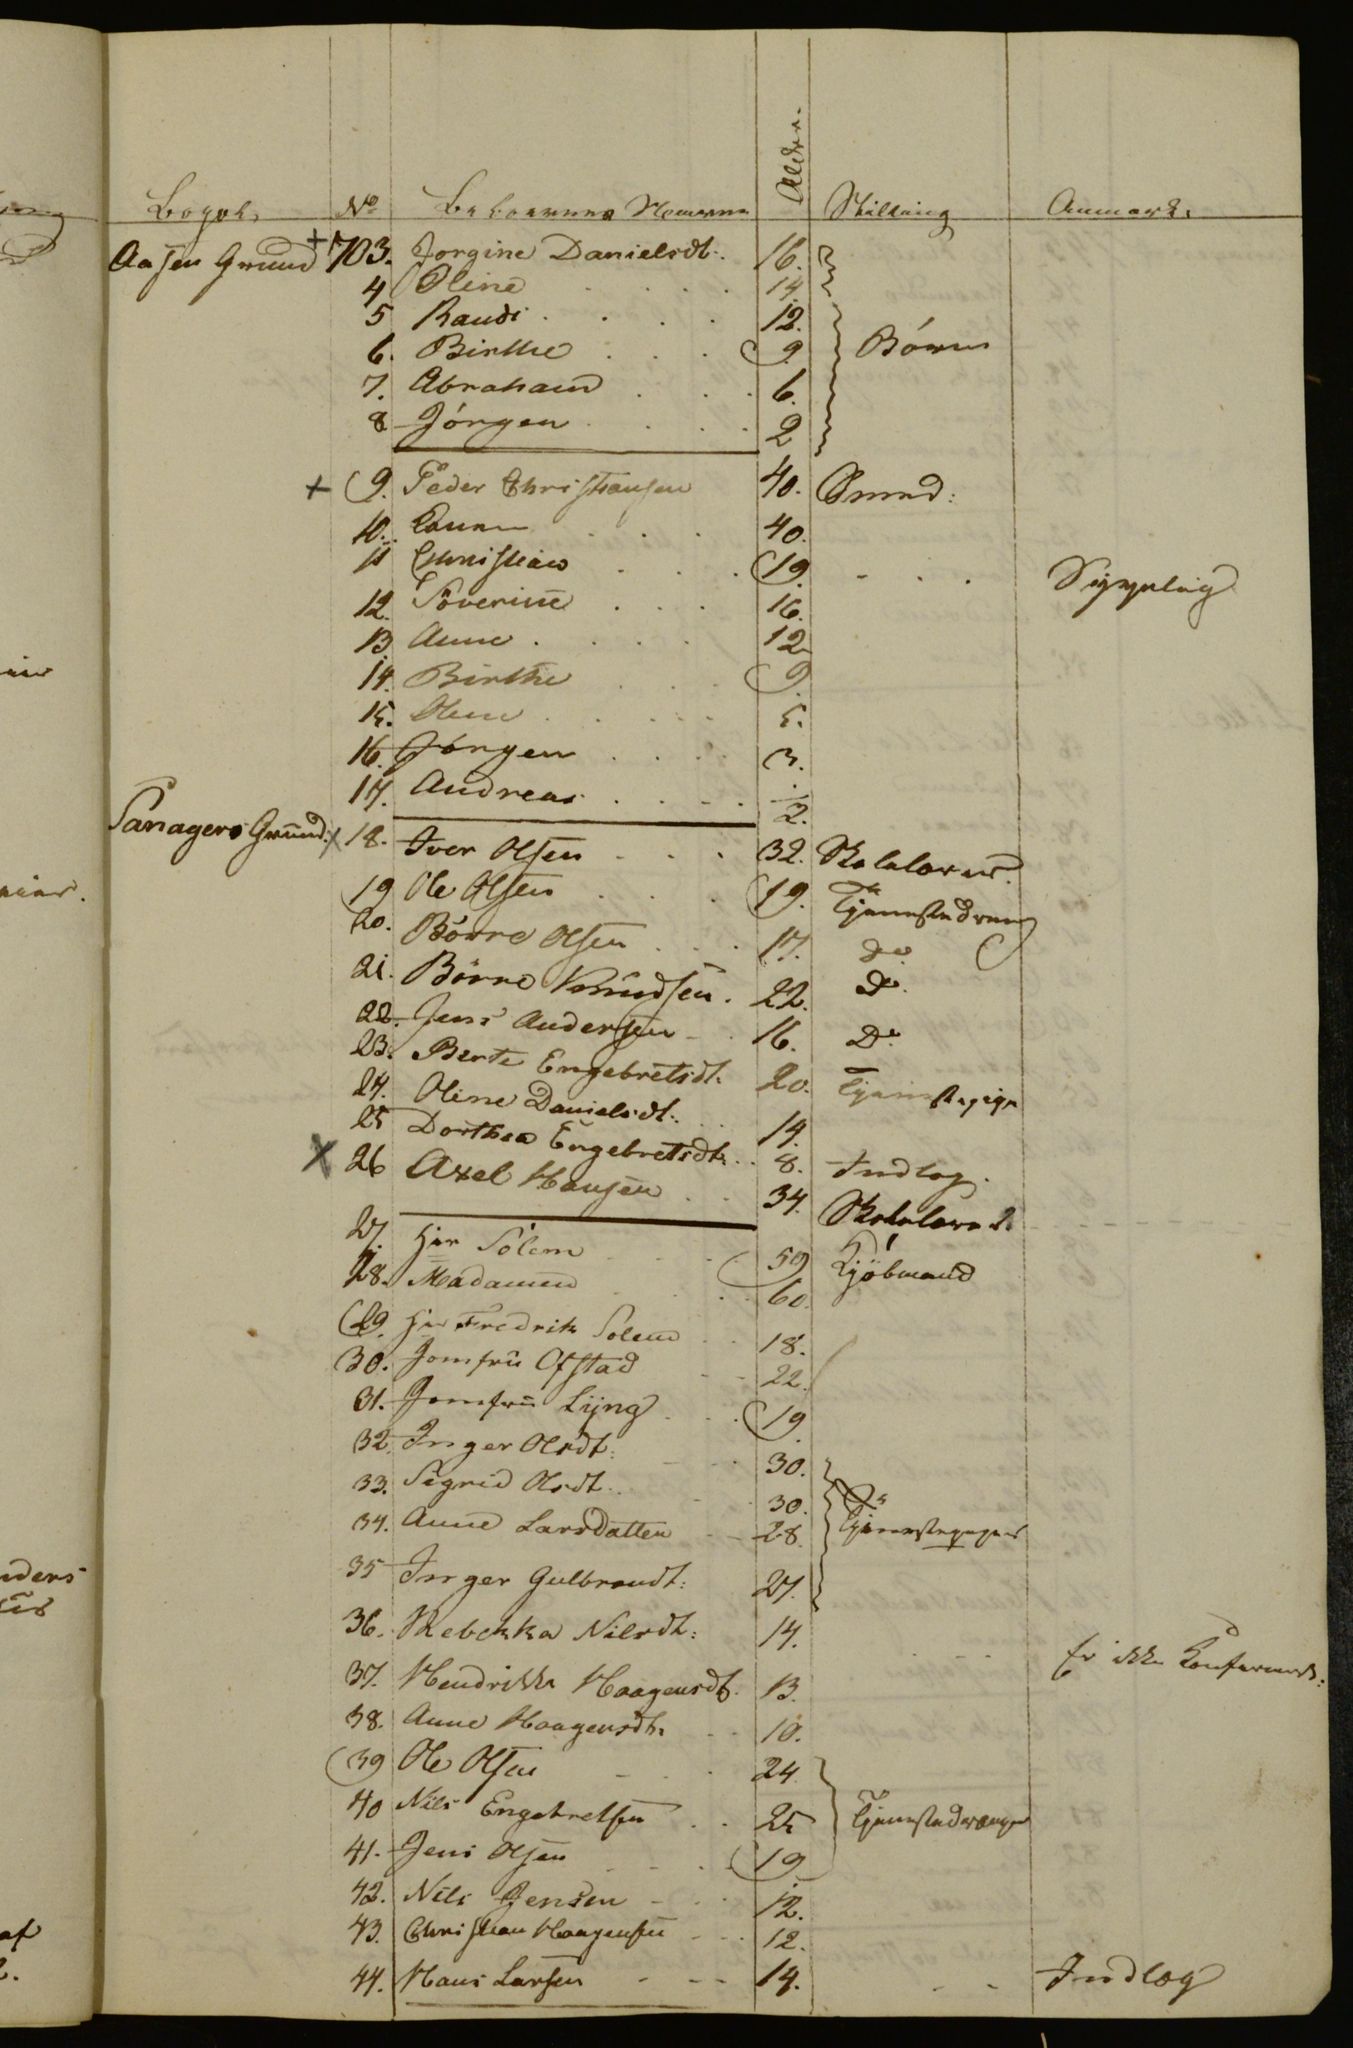 Bopæl. No Beboernes Navne Alder. Stilling Anmærk:
Aasen Grund + 703. Jorgine Danielsdt. 16.
4 Oline . . . . 14
5 Randi . . . . 12.
6. Birthe . . . 9 Börn
7. Abraham . . . 6.
8 Jörgen . . . . 2
+ 9. Peder Christiansen 40. Smed:
10. . . . 40.
11 Christian . . . 19. . . . Sygelig
12. Söverine . . . 16.
13 Anne . . . . 12
14. Birthe . . . 9
15. . . . . 5.
16. Jörgen . . . . 3.
17. Andreas . . . . 1/2.
Panagers Grund. x 18. Iver Olsen . . . 32. Skolelærer.
19 Ole Olsen . . . 19. Tjenestedreng
20. Börre Olsen . . . 17. do
21. Börre Knudsen . 22. Do.
22. Jens Andersen . 16. Do
23. Berte Engebretsdt. 20. Tjenestepige
24. Oline Danielsdt. . . 14.
25 Dorthea Engebretsdt. . . 8. Indlog.
x 26 Axel Hansen . . 34. Skolelærer
27. Hr Sölem . . . 59 Kjöbmand
28. Madamen . . . 60.
29. Hr Fredrik Solem . . 18.
30. Jomfru Ofstad - - 22.
31. Jomfrü Lÿng . . . 19.
32. Inger Olsdt. . . 30.
33. Sigrid Olsdt. . . 30.
34. Anne Larsdatten - - 28. Tjenestepiger
35 Inger Gulbrandt: 27.
36. Rebekka Nilsdt: 14. . . Er ikke Konfirmert:
37. Hendrikka Haagensdt. 13.
38. Anne Haagensdt. . . 10.
39 Ole Olsen - . . 24.
40 Nils Engebretsen . . 25 Tjenestedrenge
41. Jens Olsen - . . 19
42. Nils Jensen - . . 12.
43. Christian Haagensen - - 12.
44. Hans Larsen - - - 14. . . Indlog